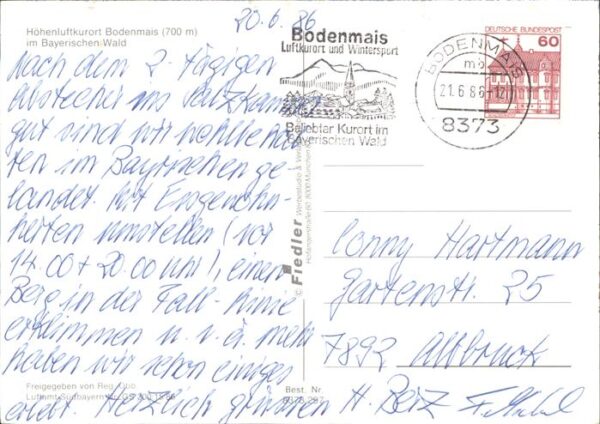 20.6.86
Höhenluftkurort Bodenmais (700 m)
im Bayerischen Wald
Nach dem 2-tägigen
Abstecher ins Salzkammer
gut sind wir
ten im Bayrischen ge-
landet. Mit Essgewohn-
heiten umstellen (vor
14.00 + 20.00 Uhr), einen
Berg in der Fall-Linie
erklimmen u. v. a. mehr
haben wir schon einiges
erlebt. Herzlich grüssen
Freigegeben von Reg. Obb.
Luftamt Südbayern
Bodenmais
Luftkurort und Wintersport
Beliebter Kurort im
Bayerischen Wald
BODENMAIS
mb
21.6.86-12
8373
DEUTSCHE BUNDESPOST
60
© Fiedler
Best. Nr.
Conny Hartmann
Gartenstr. 25
7892 Albbruck
H.